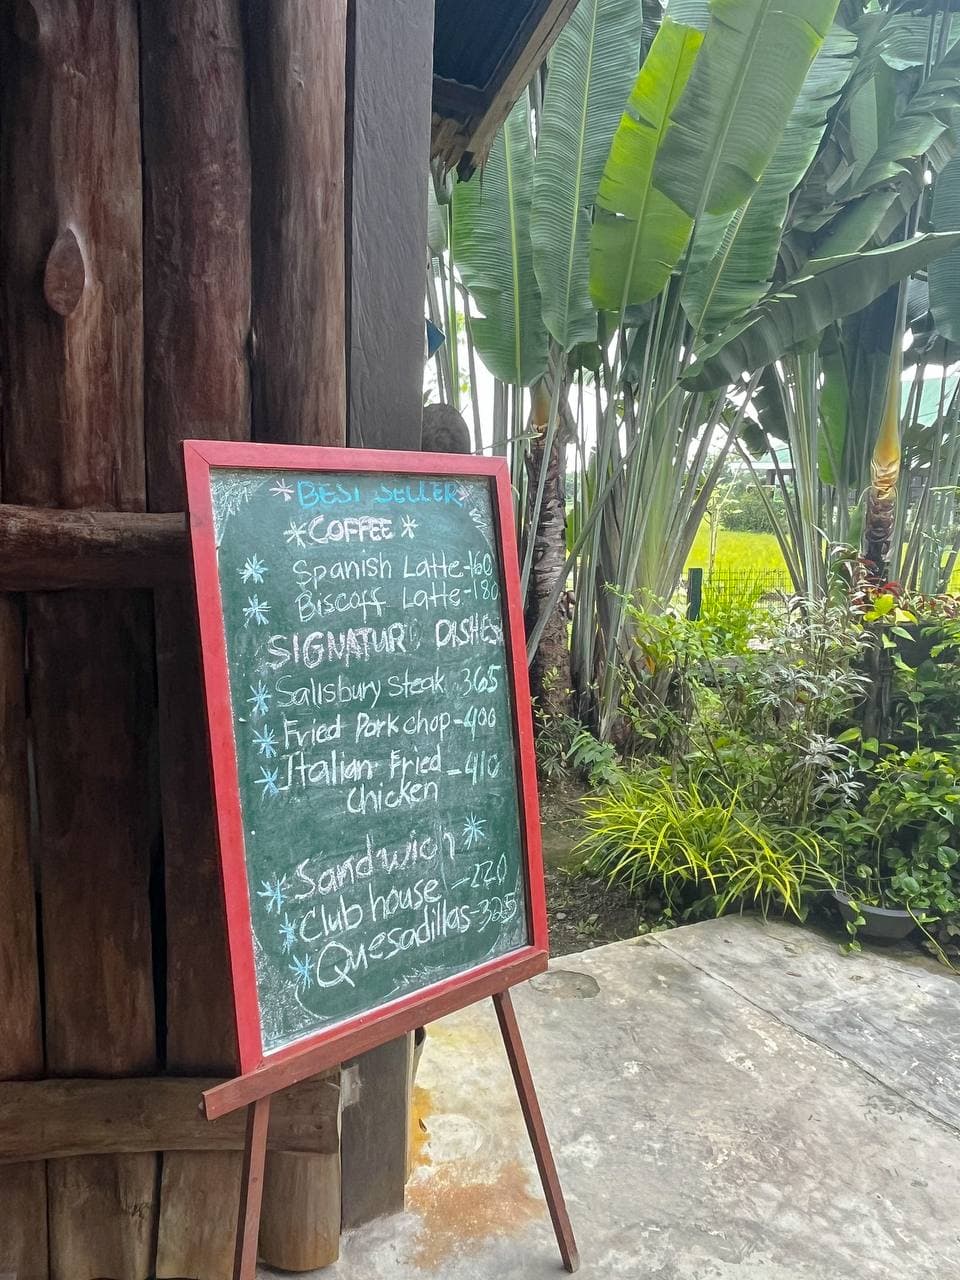 BEST SELLER
COFFEE
Spanish Latte-160
Biscoff Latte-180
SIGNATURE DISHES
Salisbury Steak 365
Fried Pork chop-400
Italian Fried -410
Chicken
Sandwich
Club house -220
Quesadillas-325